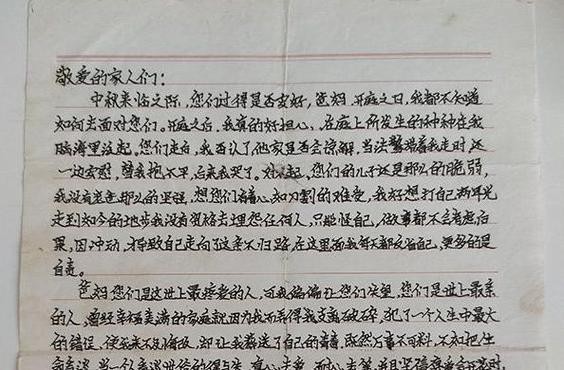 敬爱的家人们：
中秋来临之际，您们过得是否安好，爸妈，开庭之日，我都不知道
如何去面对您们。开庭之后，我真的好担心，在庭上所发生的种种在我
脑海里泛起。您们走向，我否认了他家是否会谅解，当法警带着我走时，还
一边安慰，替我抱不平，后来我哭了。对不起，您们的儿子还是那么的脆弱，
我没有想象那么的坚强，想您们有着心如刀割的难受，我好想打自己两耳光
走到如今的地步我没有资格去埋怨任何人，只能怪自己，做事都不会考虑后
果，因冲动，才导致自己走向了这条不归路，在这里面我每天都反省自己，更多的是
自责。
爸妈您们是这世上最疼爱的人，可我偏偏让您们失望，您们是世上最亲
的人，曾经幸福美满的家庭就因为我而弄得我支离破碎，犯了一个人生中最大
的错误，使我来不及悔改，却让我葬送了自己的青春，既然万事不可料，不如把